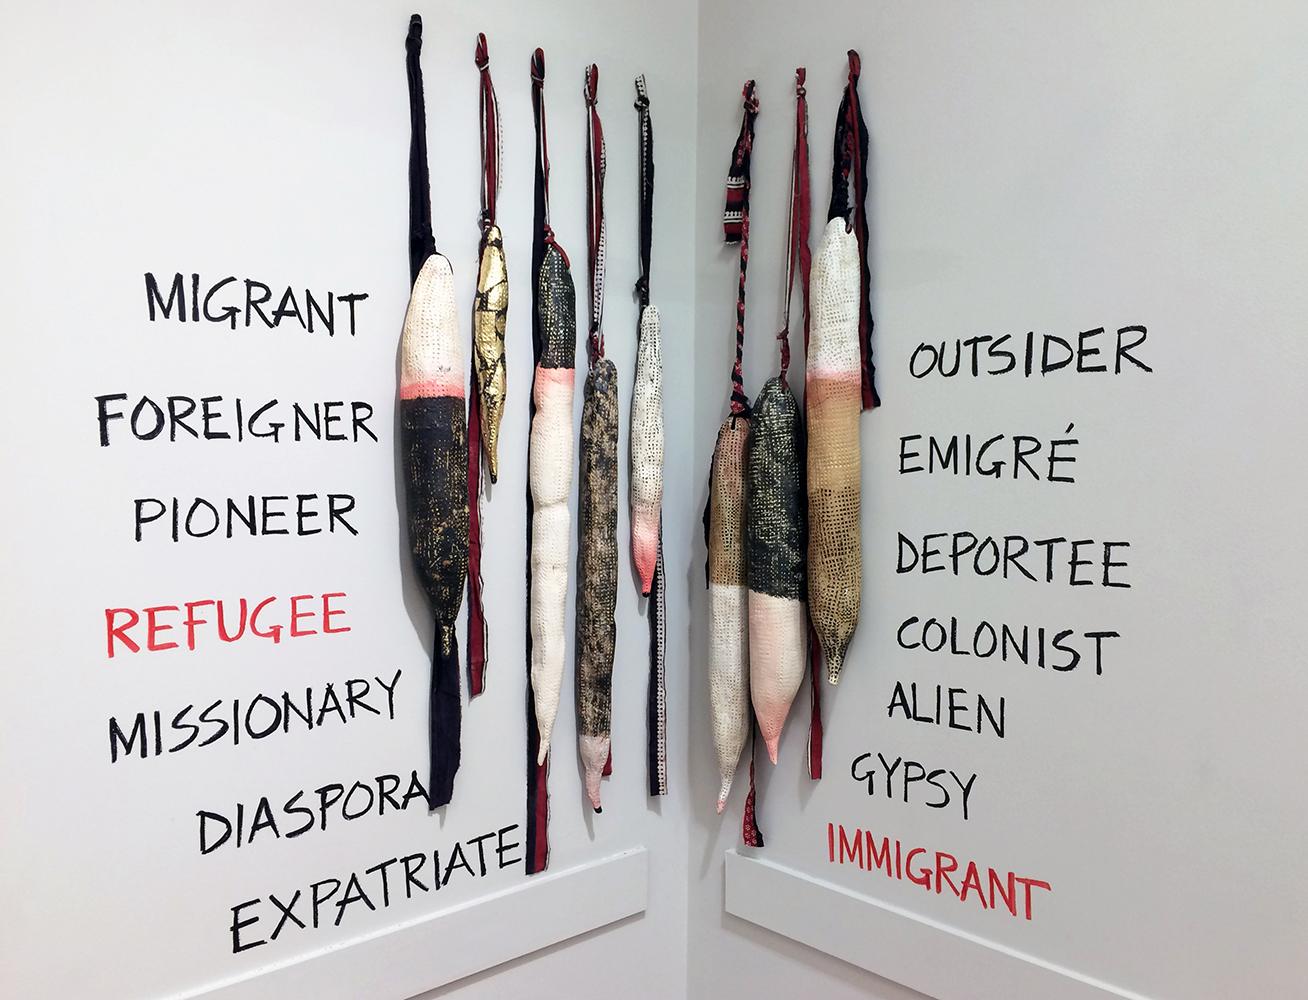 MIGRANT
FOREIGNER
PIONEER
REFUGEE
MISSIONARY
DIASPORA
EXPATRIATE
OUTSIDER
EMIGRÉ
DEPORTEE
COLONIST
ALIEN
GYPSY
IMMIGRANT